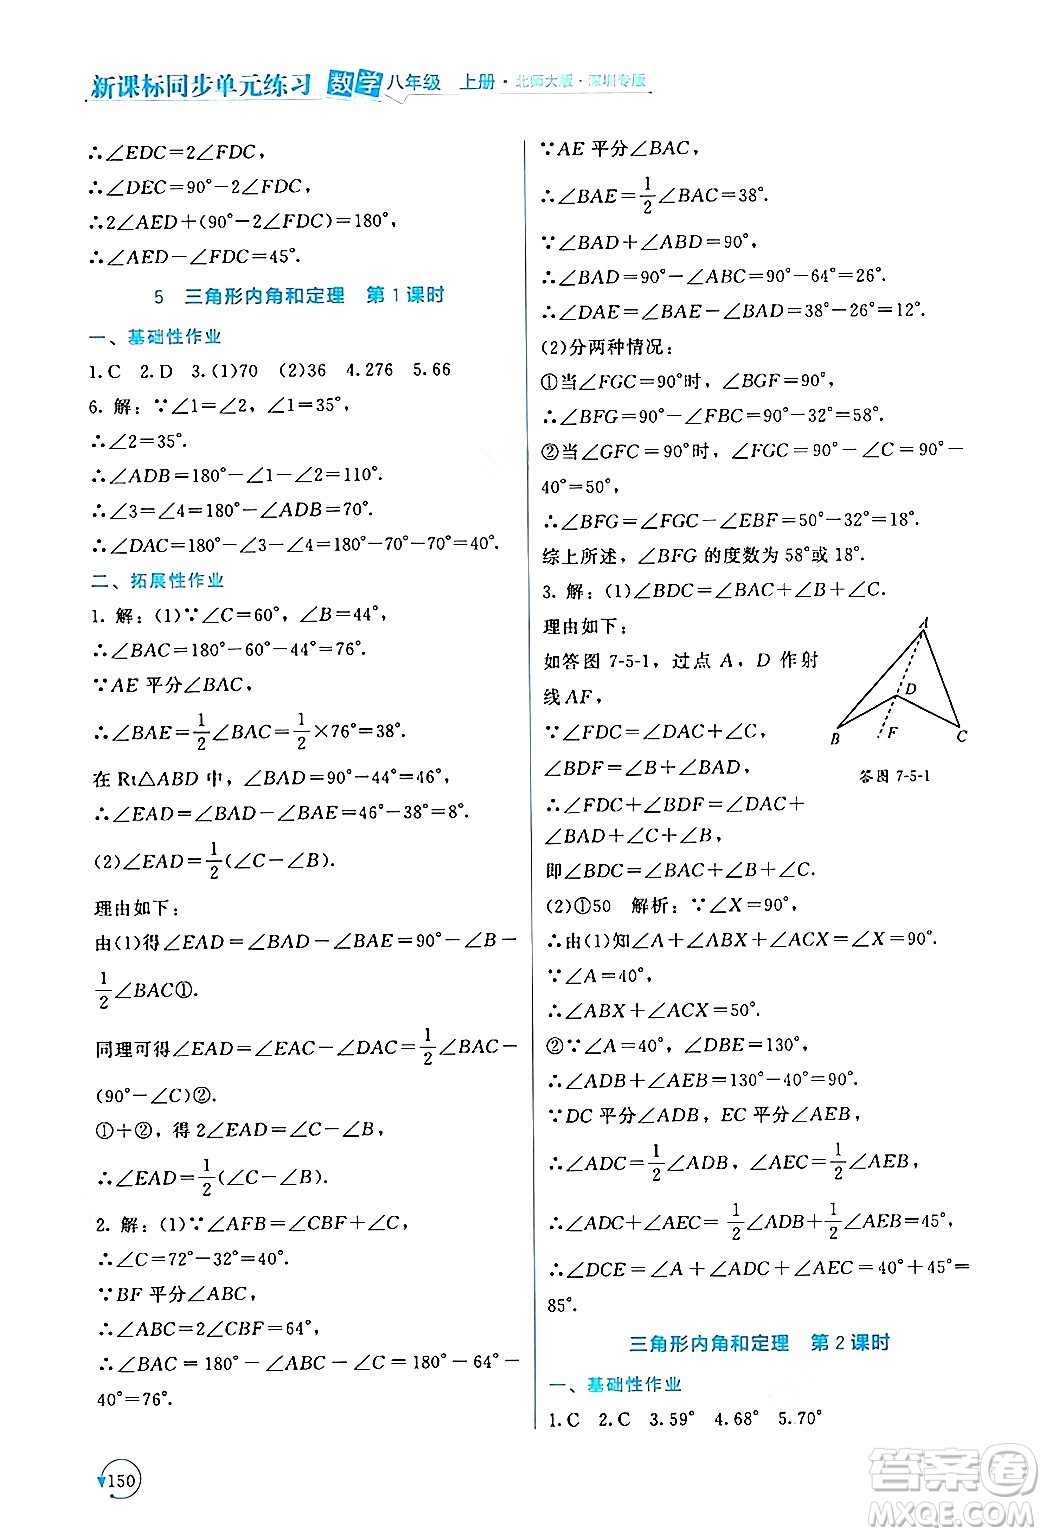 新课标同步单元练习 数学 八年级 上册·北师大版·深圳专版
∴∠EDC=2∠FDC,
∴∠DEC=90°-2∠FDC,
∴2∠AED+(90°-2∠FDC)=180°,
∴∠AED-∠FDC=45°.
5 三角形内角和定理 第1课时
一、基础性作业
1.C 2.D 3.(1)70 (2)36 4.276 5.66
6. 解:∵∠1=∠2, ∠1=35°,
∴∠2=35°.
∴∠ADB=180°-∠1-∠2=110°.
∴∠3=∠4=180°-∠ADB=70°.
∴∠DAC=180°-∠3-∠4=180°-70°-70°=40°.
二、拓展性作业
1. 解:(1)∵∠C=60°, ∠B=44°,
∴∠BAC=180°-60°-44°=76°.
∵AE 平分∠BAC,
∴∠BAE=1/2∠BAC=1/2×76°=38°.
在 Rt△ABD 中, ∠BAD=90°-44°=46°,
∴∠EAD=∠BAD-∠BAE=46°-38°=8°.
(2)∠EAD=1/2(∠C-∠B).
理由如下:
由(1)得∠EAD=∠BAD-∠BAE=90°-∠B-
1/2∠BAC①.
同理可得∠EAD=∠EAC-∠DAC=1/2∠BAC-
(90°-∠C)②.
①+②, 得 2∠EAD=∠C-∠B,
∴∠EAD=1/2(∠C-∠B).
2. 解:(1)∵∠AFB=∠CBF+∠C,
∴∠C=72°-32°=40°.
∵BF 平分∠ABC,
∴∠ABC=2∠CBF=64°,
∴∠BAC=180°-∠ABC-∠C=180°-64°-
40°=76°.
150
∵AE 平分∠BAC,
∴∠BAE=1/2∠BAC=38°.
∵∠BAD+∠ABD=90°,
∴∠BAD=90°-∠ABD=90°-64°=26°,
∴∠DAE=∠BAE-∠BAD=38°-26°=12°.
(2)分两种情况:
①当∠FGC=90°时, ∠BGF=90°,
∴∠BFG=90°-∠FBG=90°-32°=58°.
②当∠GFC=90°时, ∠FGC=90°-∠C=90°-
40°=50°,
∴∠BFG=∠FGC-∠EBF=50°-32°=18°.
综上所述, ∠BFG 的度数为 58°或 18°.
3. 解:(1)∠BDC=∠BAC+∠B+∠C.
理由如下:
如答图 7-5-1, 过点 A, D 作射
线 AF,
∵∠FDC=∠DAC+∠C,
∠BDF=∠B+∠BAD,
∴∠FDC+∠BDF=∠DAC+
∠BAD+∠C+∠B,
即∠BDC=∠BAC+∠B+∠C.
A
D
B
F
C
答图 7-5-1
(2)①50 解析:∵∠X=90°,
∴由(1)知∠A+∠ABX+∠ACX=∠X=90°.
∵∠A=40°,
∴∠ABX+∠ACX=50°.
②∵∠A=40°, ∠DBE=130°,
∴∠ADB+∠AEB=130°-40°=90°.
∵DC 平分∠ADB, EC 平分∠AEB,
∴∠ADC=1/2∠ADB, ∠AEC=1/2∠AEB,
∴∠ADC+∠AEC=1/2∠ADB+1/2∠AEB=45°,
∴∠DCE=∠A+∠ADC+∠AEC=40°+45°=
85°.
三角形内角和定理 第2课时
一、基础性作业
1.C 2.C 3.59° 4.68° 5.70°
答案圈
MXQE.COM